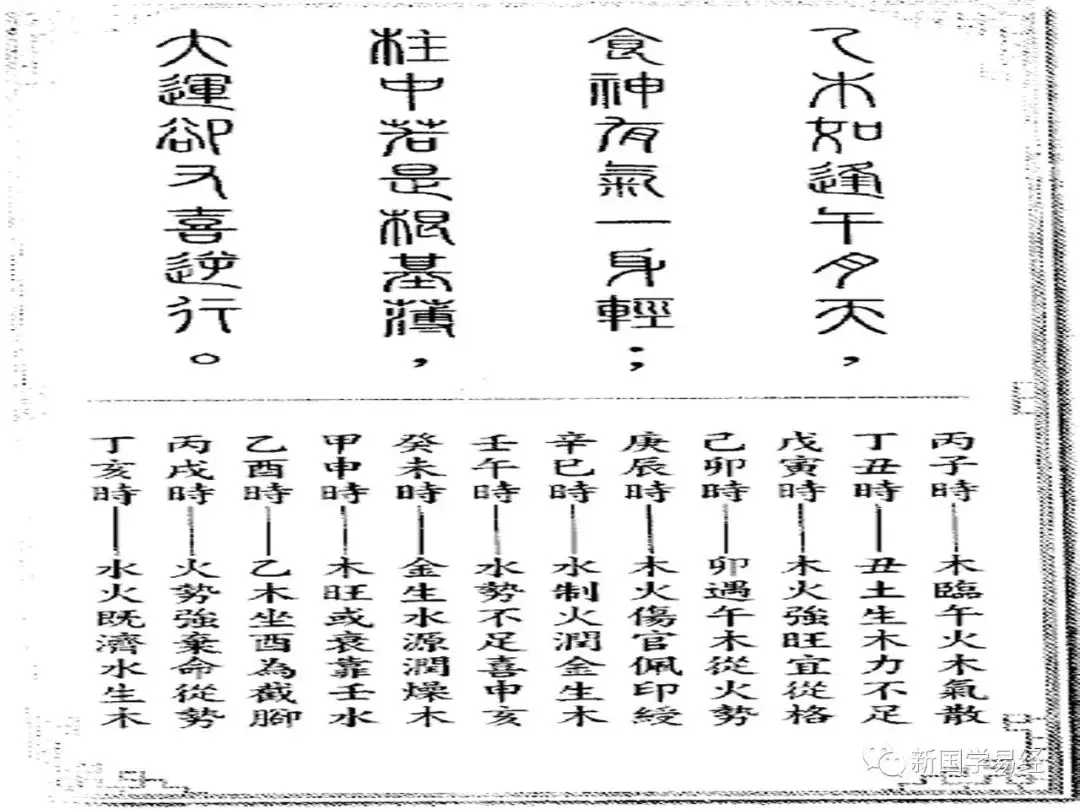 乙木如逢午月天，
食神有氣一身輕；
柱中若是根基薄，
大運卻又喜逆行。
丙子時——木臨午火木氣散
丁丑時——丑土生木力不足
戊寅時——木火強旺宜從格
己卯時——卯遇午木從火勢
庚辰時——木火傷官佩印綬
辛巳時——水制火潤金生木
壬午時——水勢不足喜申亥
癸未時——金生水源潤燥木
甲申時——木旺或衰靠壬水
乙酉時——乙木坐酉為截腳
丙戌時——火勢強棄命從勢
丁亥時——水火既濟水生木
新国学易经